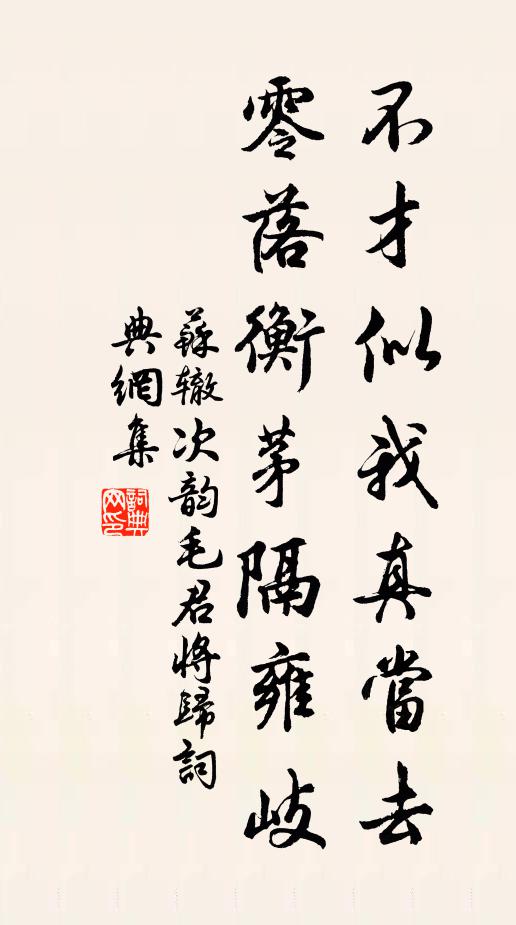 不才似我真當去
零落衡茅隔雍岐
蘇辙次韵毛君將歸詞
典網集
詞典網印